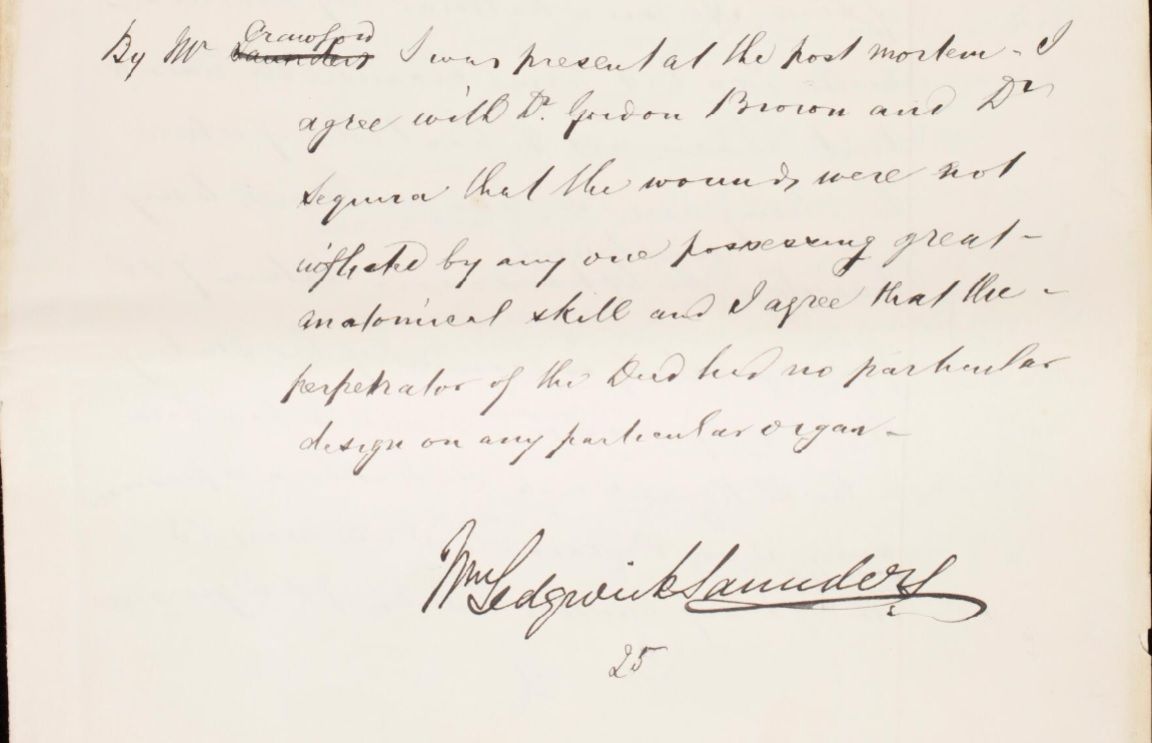 By Mr Crawford Saunders I was present at the post mortem - I
agree with Dr. Gordon Brown and Dr
Sequira that the wounds were not
inflicted by any one possessing great -
anatomical skill and I agree that the -
perpetrator of the Deed had no particular
design on any particular organ -
Wm Sedgwick Saunders
25